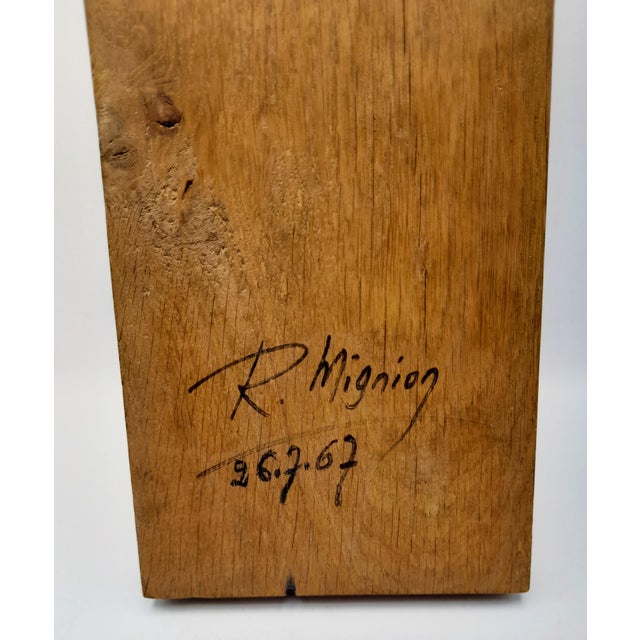 R. Mignion
26.7.67